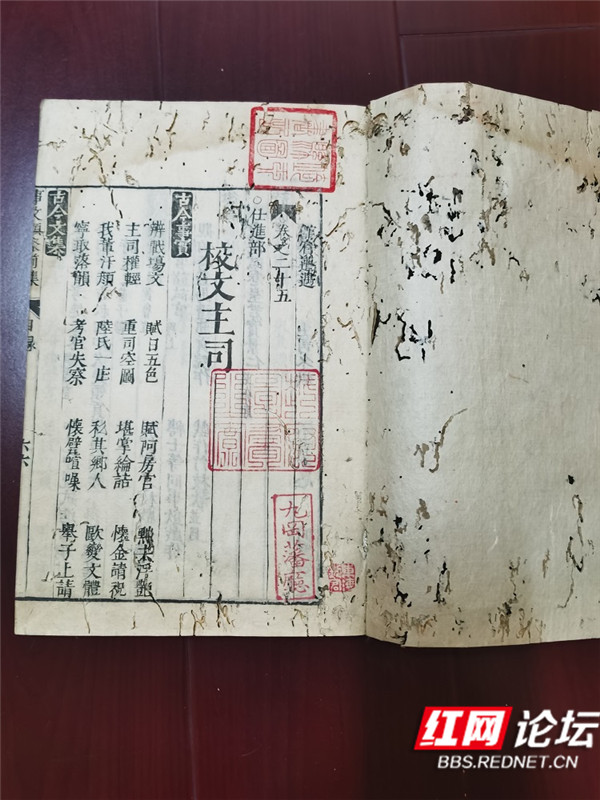 卷之二十五
仕進部
校文主司
古今事實
辨戰場文 賦日五色 賦阿房宮 黜去浮艷
主司權輕 重司空圖 堪掌綸誥 懷金請祝
我輩汗顏 陸氏一庄 私其鄉人 歐變文體
寧取落韻 考官失察 懷璧喧噪 舉子上請
古今文集
丸岡藩廳
红网论坛
BBS.REDNET.CN